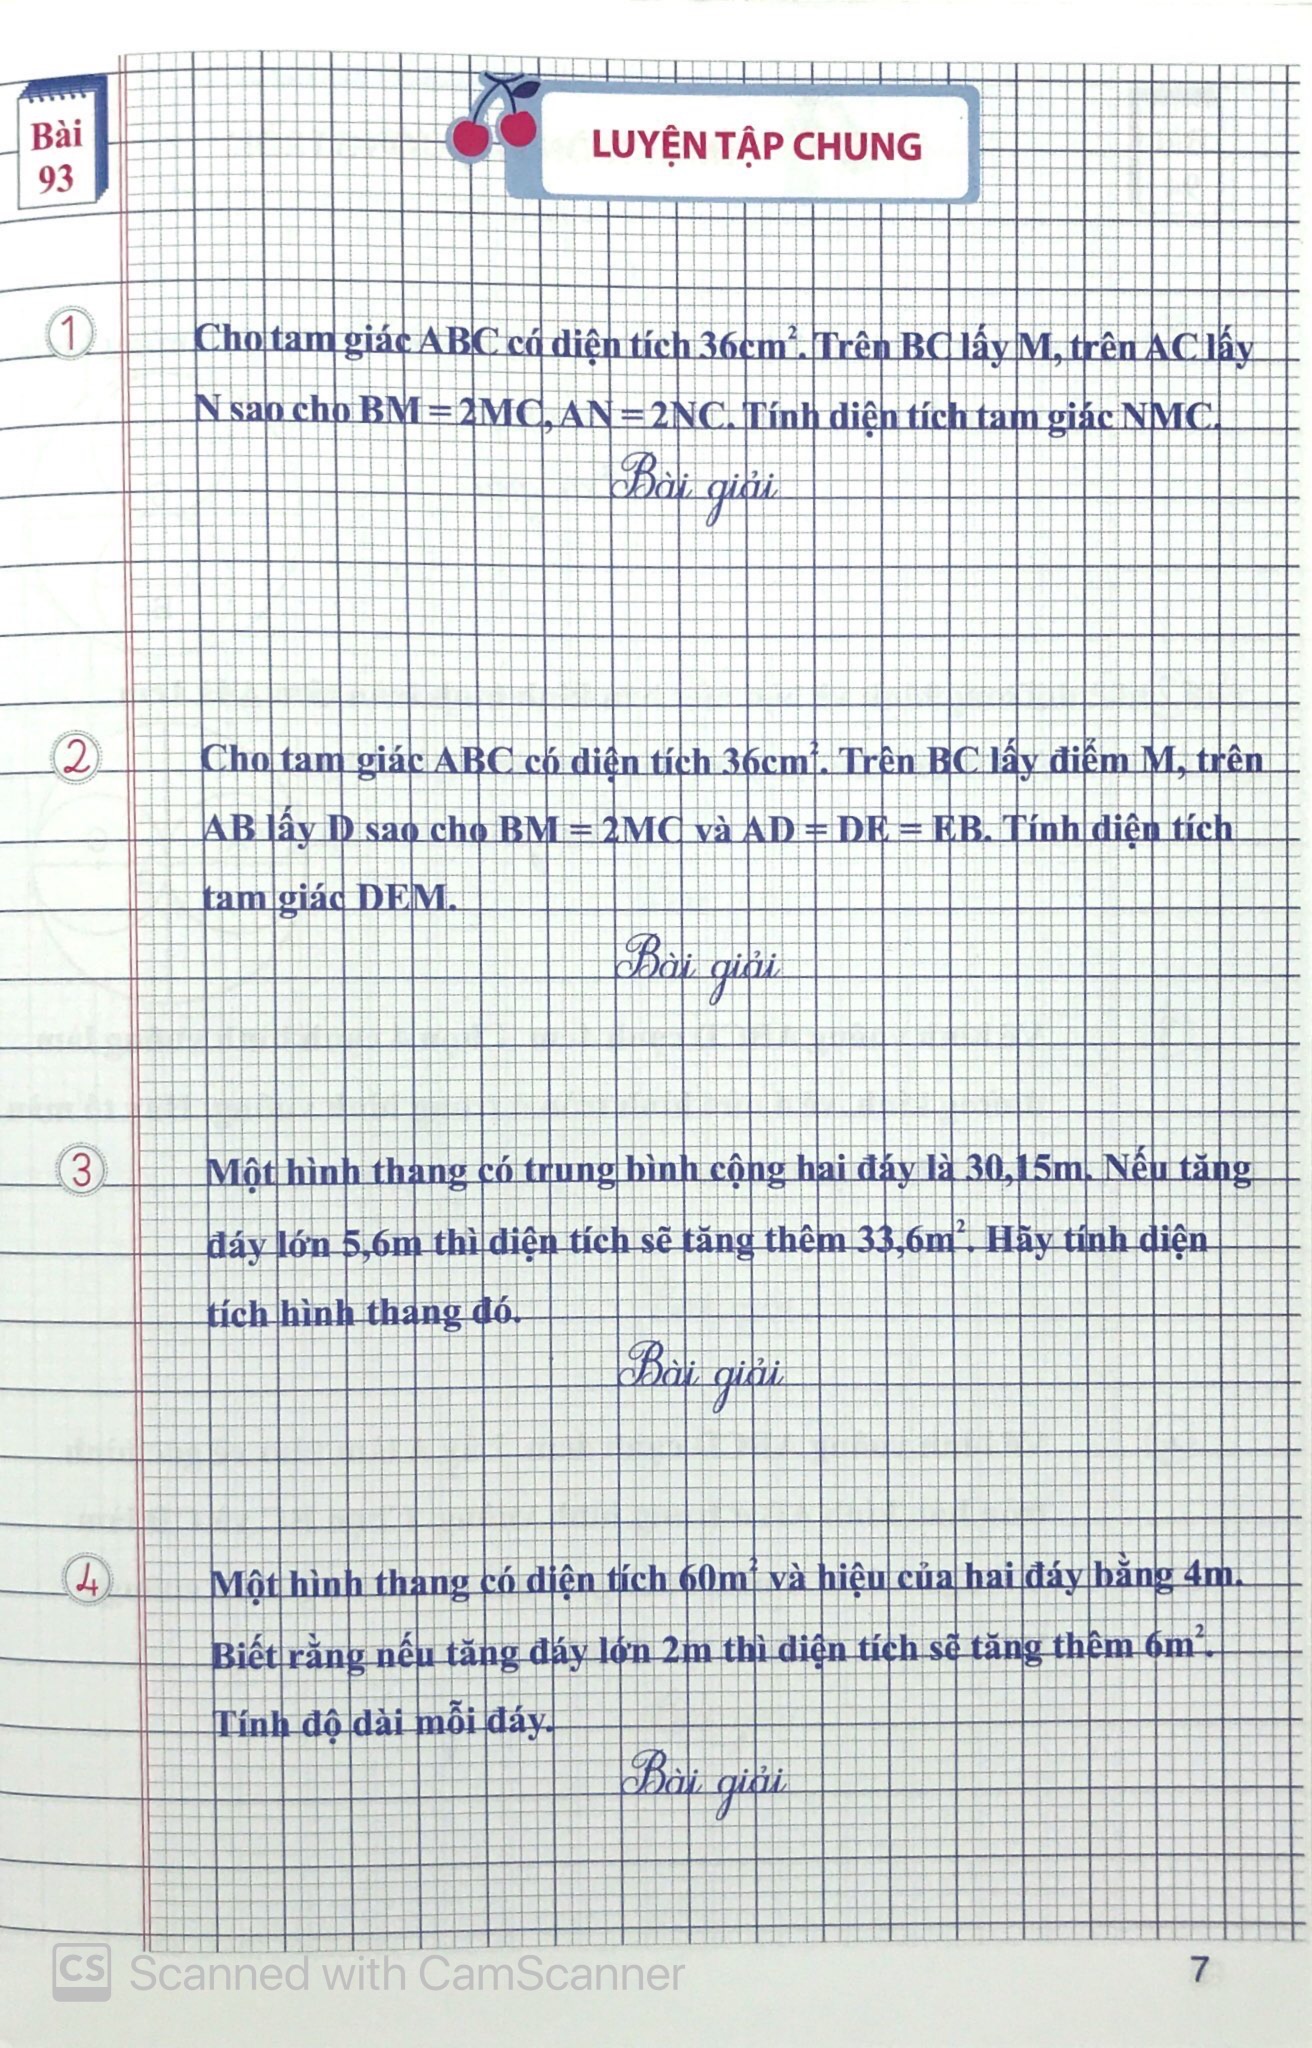 Bài
93
LUYỆN TẬP CHUNG
1
Cho tam giác ABC có diện tích 36cm². Trên BC lấy M, trên AC lấy
N sao cho BM = 2MC, AN = 2NC. Tính diện tích tam giác NMC.
Bài giải
2
Cho tam giác ABC có diện tích 36cm². Trên BC lấy điểm M, trên
AB lấy D sao cho BM = 2MC và AD = DE = EB. Tính diện tích
tam giác DEM.
Bài giải
3
Một hình thang có trung bình cộng hai đáy là 30,15m. Nếu tăng
đáy lớn 5,6m thì diện tích sẽ tăng thêm 33,6m². Hãy tính diện
tích hình thang đó.
Bài giải
4
Một hình thang có diện tích 60m² và hiệu của hai đáy bằng 4m.
Biết rằng nếu tăng đáy lớn 2m thì diện tích sẽ tăng thêm 6m².
Tính độ dài mỗi đáy.
Bài giải
CS Scanned with CamScanner
7